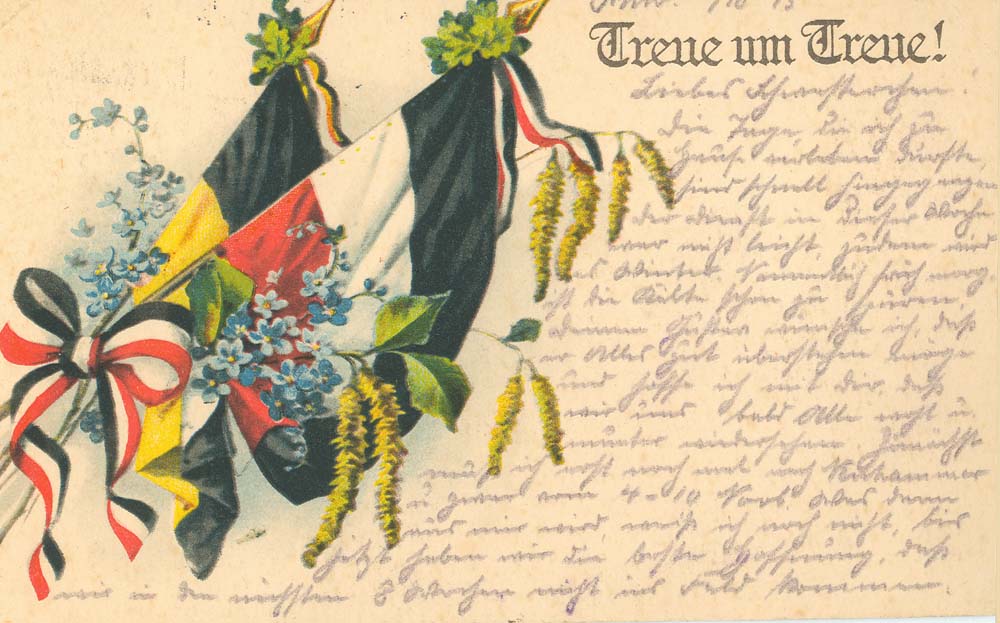 Treue um Treue!
Liebes Schwesterchen.
Die Tage die ich zu
Hause verleben durfte
sind schnell hingegangen
der Dienst in dieser Woche
war nicht leicht, zudem wird
es Winter. Namentlich früh morg.
ist die Kälte schon zu spüren.
Deinem wünsche ich, daß
er Alles gut überstehen möge
und hoffe ich mit dir, daß
wir uns bald Alle recht u.
munter wiedersehen. Zunächst
muß ich erst noch mal nach Neuhammer
u. zwar vom 4–14 Novb. Was dann
aus mir wird, weiß ich noch nicht, bis
jetzt haben wir die beste Hoffnung, daß
wir in den nächsten 8 Wochen nicht ins Feld kommen.